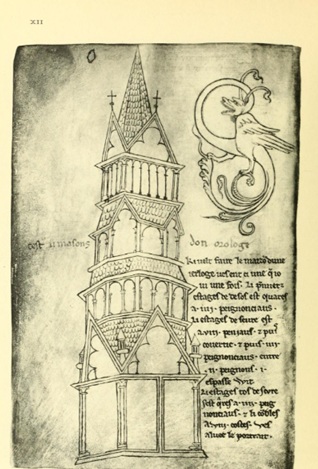 XII
cest li masons don orologe
Ki velt faire le maizo dune
ierloge vesent ci une q̄ io
vi une fois. Li p̄mier
estages de desos est quares
a ·iiii· peignonciaus.
Li estages de seure est
a viii· peniaus· ⁊ puis
covertic· ⁊ puis ·iiii·
peignonciaus· entre
·ii· peignons ·i·
espasse wit
Li estages tos de sevre
sest q̄res a ·iiii· peig
nonciaus· ⁊ li cōbles
a viii· costes· ves
aluec le portrait·